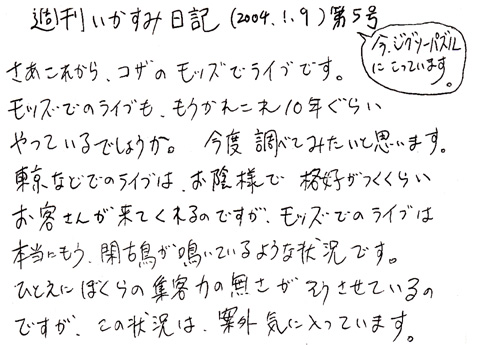 週刊いかすみ日記 (2004.1.9) 第5号
今、ジグソーパズルに
こっています。
さあこれから、コザのモッズでライブです。
モッズでのライブも、もうかれこれ10年ぐらい
やっているでしょうか。 今度調べてみたいと思います。
東京などでのライブは、お陰様で 格好がつくくらい
お客さんが来てくれるのですが、モッズでのライブは
本当にもう、閑古鳥が鳴いているような状況です。
ひとえにぼくらの集客力の無さがそうさせているの
ですが、この状況は、案外気に入っています。